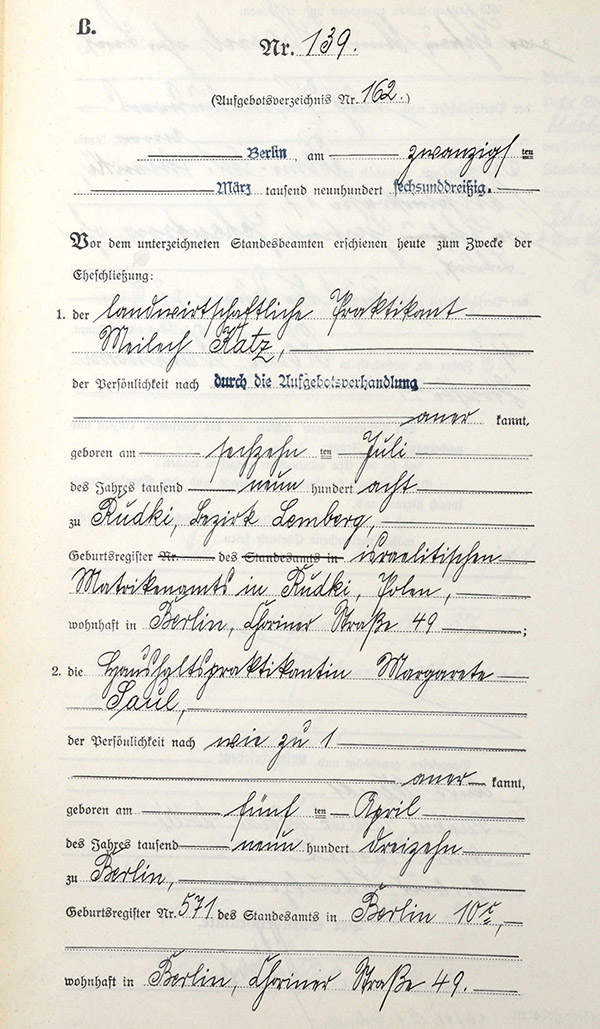 B.
Nr. 139.
(Aufgebotsverzeichnis Nr. 162.)
Berlin, am zwanzigsten
März tausend neunhundert sechsunddreißig.
Vor dem unterzeichneten Standesbeamten erschienen heute zum Zwecke der
Eheschließung:
1. der landwirtschaftliche Praktikant
Meilech Katz,
der Persönlichkeit nach durch die Aufgebotsverhandlung
aner kannt,
geboren am sechzehn ten Juli
des Jahres tausend neun hundert acht
zu Rudki, Bezirk Lemberg,
Geburtsregister Nr. des Standesamts in israelitischen
Matrikenamts in Rudki, Polen,
wohnhaft in Berlin, Choriner Straße 49 ;
2. die Haushaltspraktikantin Margarete
Saul,
der Persönlichkeit nach wie zu 1
aner kannt,
geboren am fünf ten April
des Jahres tausend neun hundert dreizehn
zu Berlin,
Geburtsregister Nr. 571 des Standesamts in Berlin
wohnhaft in Berlin, Choriner Straße 49.